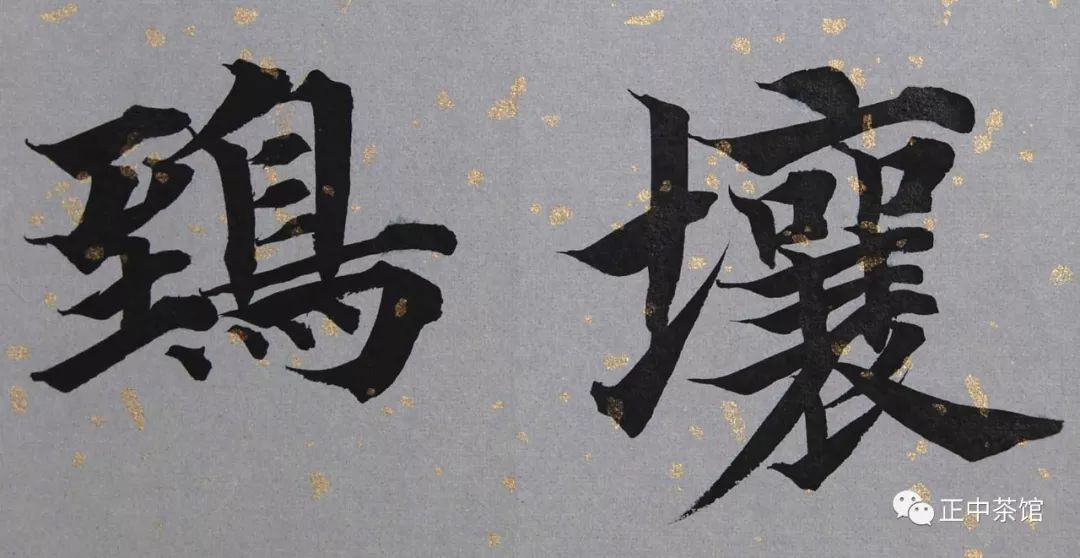 壤鵄
正中茶馆